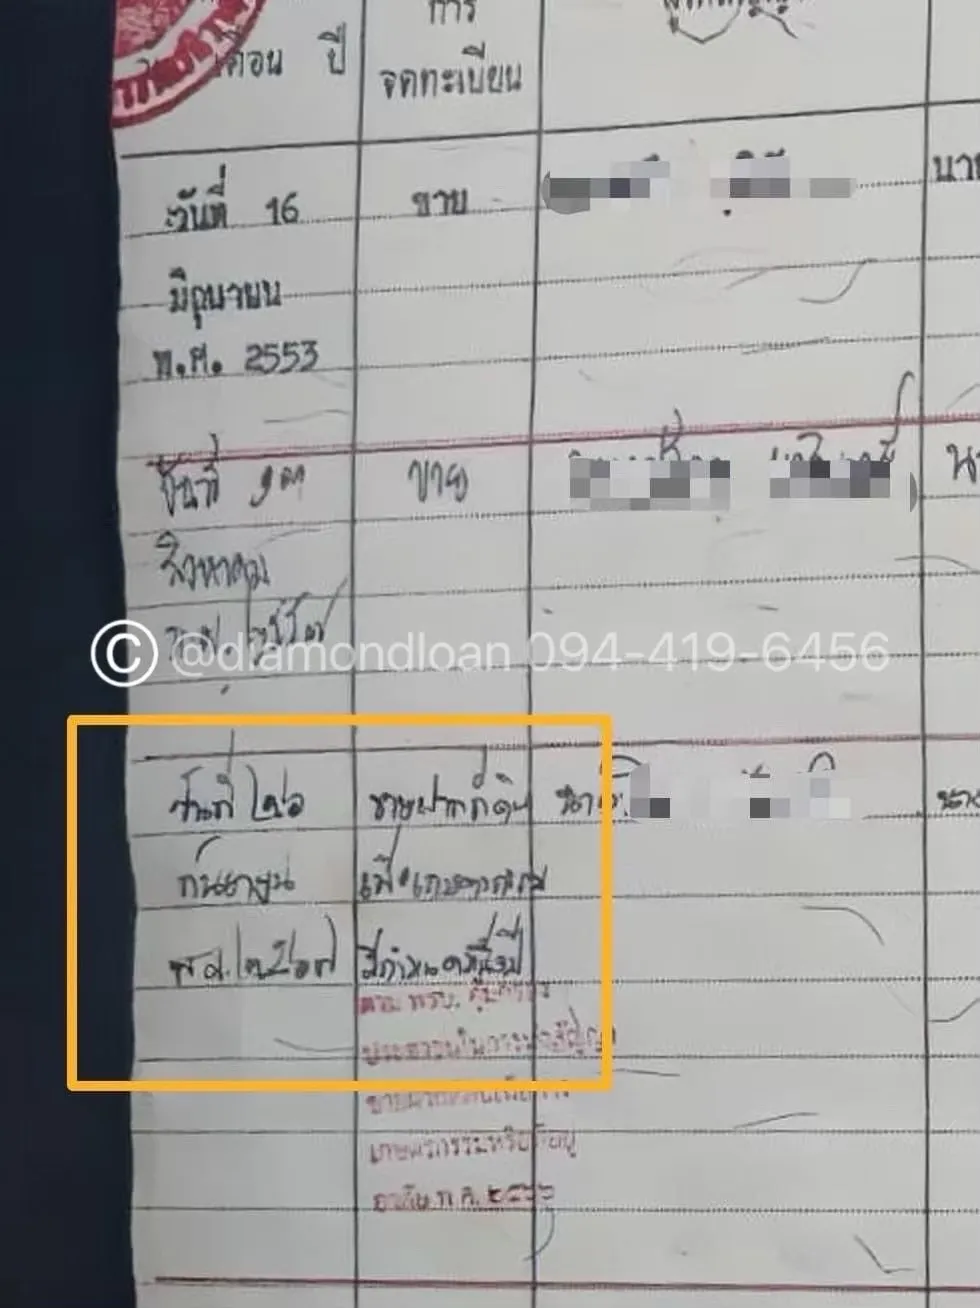 การ
เดือน ปี
จดทะเบียน
วันที่ 16 ขาย
นา
มิถุนายน
พ.ศ. 2553
วันที่ ๑๓ ขาย
สิงหาคม
© @diamondloan 094-419-6456
วันที่ ๒๐ ขายฝากที่ดิน
กันยายน เพื่อเกษตรกรรม
พ.ศ. ๒๕๖๗ มีกำหนดหนึ่งปี
ตาม พรบ. คุ้มครอง
ประชาชนในการทำสัญญา
ขายฝากที่ดินเพื่อการ
เกษตรกรรมหรือที่อยู่
อาศัย พ.ศ. ๒๕๖๒